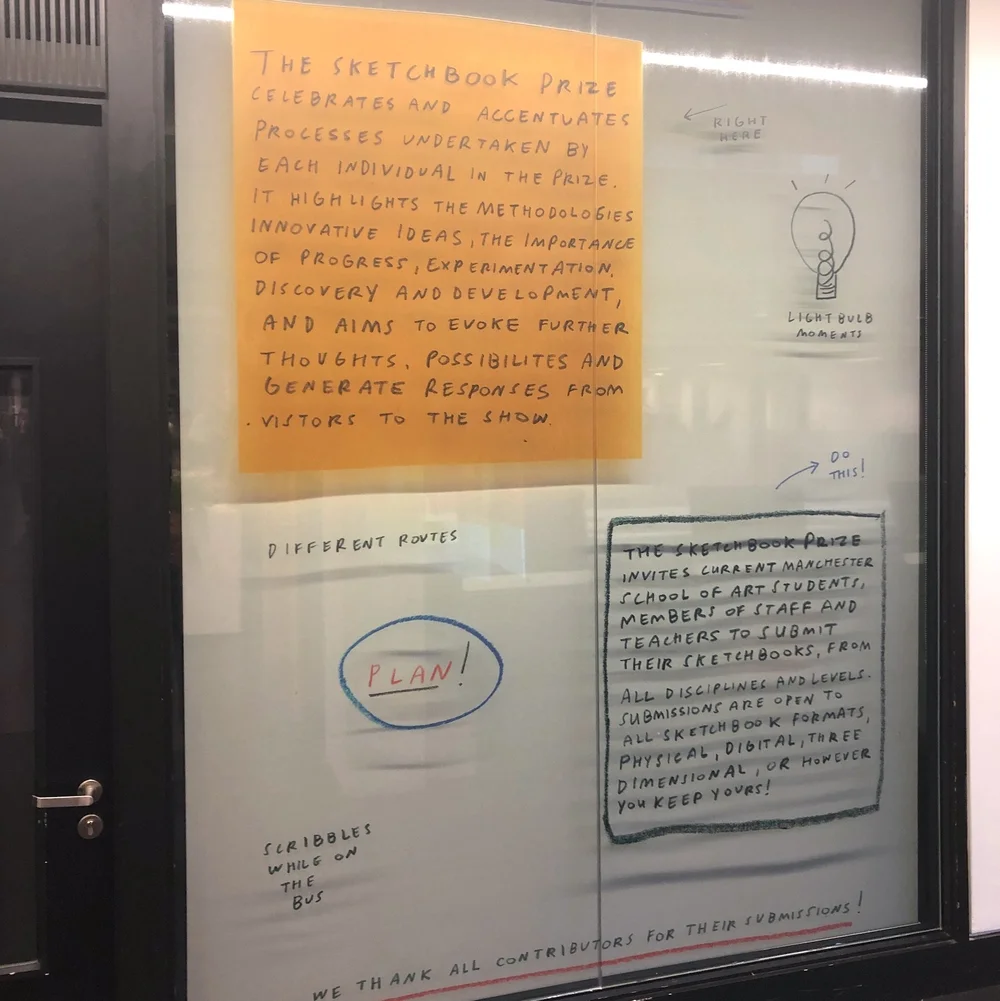 THE SKETCHBOOK PRIZE
CELEBRATES AND ACCENTUATES
PROCESSES UNDERTAKEN BY
EACH INDIVIDUAL IN THE PRIZE.
IT HIGHLIGHTS THE METHODOLOGIES
INNOVATIVE IDEAS, THE IMPORTANCE
OF PROGRESS, EXPERIMENTATION,
DISCOVERY AND DEVELOPMENT,
AND AIMS TO EVOKE FURTHER
THOUGHTS, POSSIBILITES AND
GENERATE RESPONSES FROM
VISTORS TO THE SHOW.
RIGHT
HERE
LIGHTBULB
MOMENTS
DO
THIS!
DIFFERENT ROUTES
PLAN!
THE SKETCHBOOK PRIZE
INVITES CURRENT MANCHESTER
SCHOOL OF ART STUDENTS,
MEMBERS OF STAFF AND
TEACHERS TO SUBMIT
THEIR SKETCHBOOKS, FROM
ALL DISCIPLINES AND LEVELS.
SUBMISSIONS ARE OPEN TO
ALL SKETCHBOOK FORMATS,
PHYSICAL, DIGITAL, THREE
DIMENSIONAL, OR HOWEVER
YOU KEEP YOURS!
SCRIBBLES
WHILE ON
THE
BUS
WE THANK ALL CONTRIBUTORS FOR THEIR SUBMISSIONS!